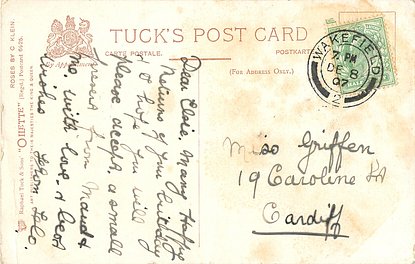 TUCK'S POST CARD
CARTE POSTALE.
POSTKARTE
(FOR ADDRESS ONLY)
By Appointment
ROSES BY C. KLEIN.
Raphael Tuck & Sons' "OILETTE" [Regd.] Postcard 6676.
ART PUBLISHERS TO THEIR MAJESTIES THE KING & QUEEN
WAKEFIELD
PM
DE 8
07
2
Dear Elsie, Many Happy
Returns of your birthday
& I hope you will
please accept a small
present from Maud &
me, with love & best
wishes from
Miss Griffen
19 Caroline St
Cardiff